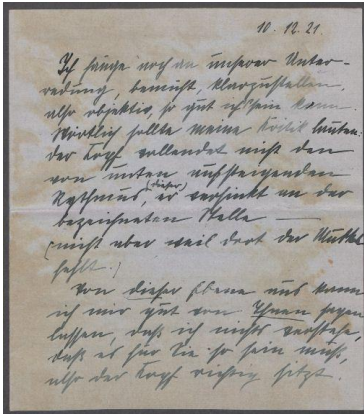 10. 12. 21.
Ich hänge noch an unserer Unter-
redung, bemüht, klarzustellen,
also objektiv, so gut ich's kann.
Wörtlich sollte meine Kritik lauten:
der Kopf vollendet nicht den
von unten aufsteigenden
Rythmus, (dieser) er versinkt an der
bezeichneten Stelle —
(nicht aber weil dort der Muskel
fehlt.)
Von dieser Ebene aus kann
ich mir gut von Ihnen sagen
lassen, daß ich nichts verstehe,
daß es für Sie so sein muß,
also der Kopf richtig sitzt.